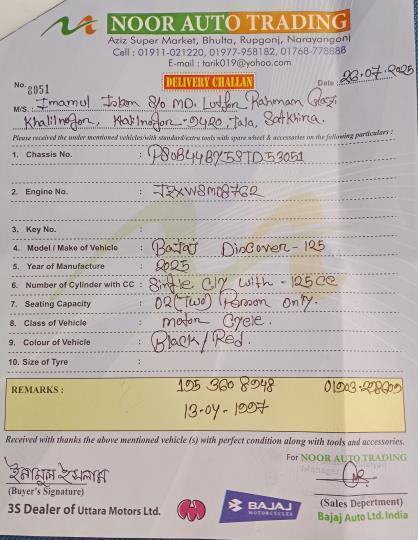 NOOR AUTO TRADING
Aziz Super Market, Bhulta, Rupgonj, Narayangonj
Cell : 01911-021220, 01977-958182, 01768-778888
E-mail : tarik019@yahoo.com
No. 8051
DELIVERY CHALLAN
Date : 22.07.2025
M/S: Imamul Islam S/o MD. Lutfor Rahman Gazi
Khalilnogor, Khalilnogor-9420, Tala, Satkhira.
Please received the under mentioned vehicles/with standard/extra tools with spare wheel & accessories on the following particulars :
1. Chassis No. : PSUB44BX5STD53051
2. Engine No. :
3. Key No. :
4. Model / Make of Vehicle : Bajaj Discover-125
5. Year of Manufacture : 2025
6. Number of Cylinder with CC : Single Cly with - 125 CC
7. Seating Capacity : 02 (Two) Person only.
8. Class of Vehicle : motor Cycle.
9. Colour of Vehicle : Black/Red.
10. Size of Tyre :
REMARKS : 195 360 8948
13-04-1997
Received with thanks the above mentioned vehicle (s) with perfect condition along with tools and accessories.
For NOOR AUTO TRADING
ইমামুল ইসলাম
(Buyer's Signature)
(Sales Depertment)
3S Dealer of Uttara Motors Ltd.
BAJAJ
MOTORCYCLES
Bajaj Auto Ltd. India